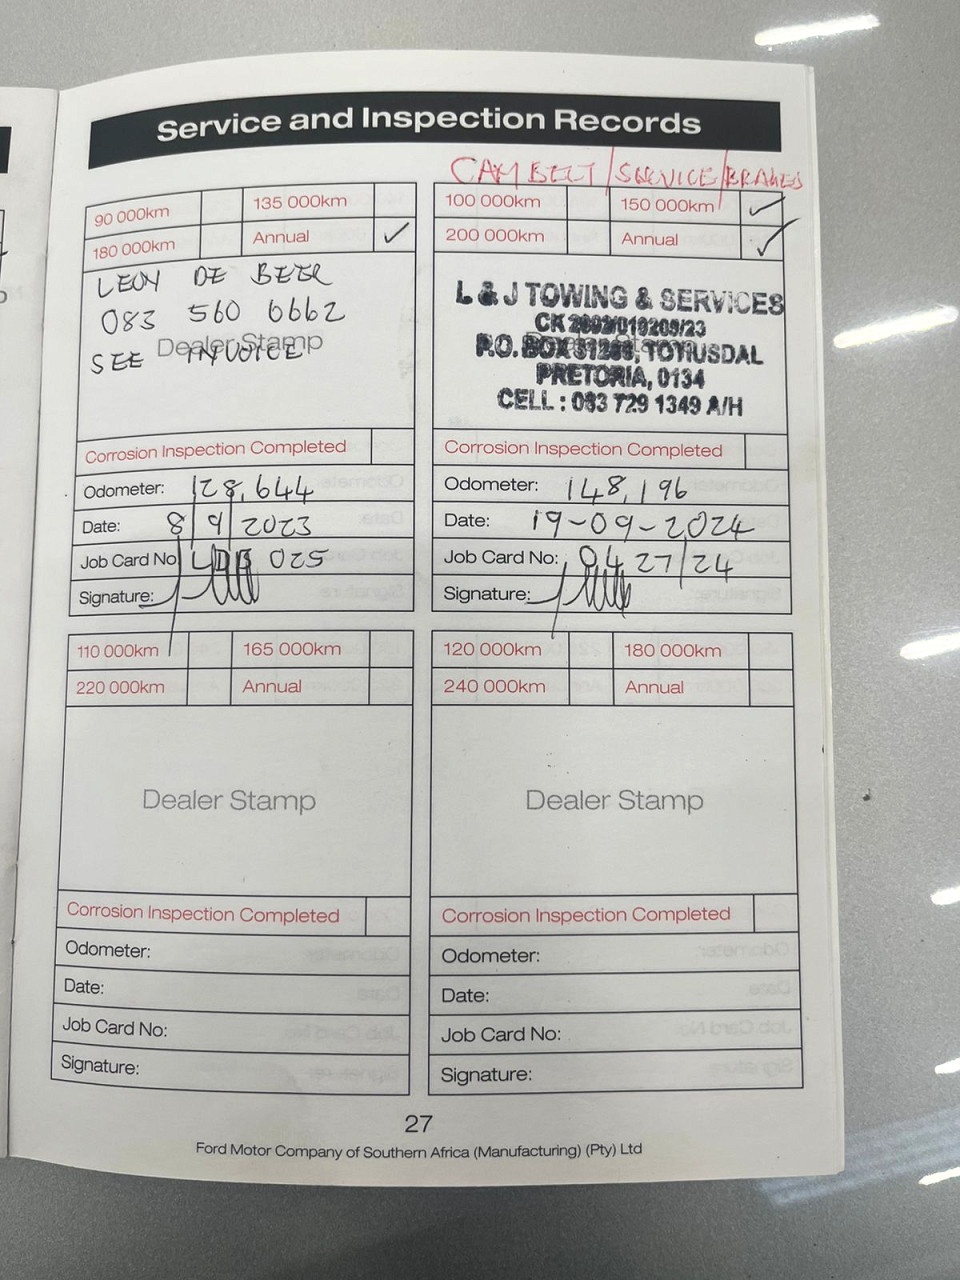 Service and Inspection Records
CAMBELT/SERVICE/BRAKES
90 000km 135 000km
180 000km Annual ✓
LEON DE BEER
083 560 6662
Dealer Stamp
SEE INVOICE
Corrosion Inspection Completed
Odometer: 128,644
Date: 8/9/2023
Job Card No: 025
Signature:
100 000km 150 000km ✓
200 000km Annual ✓
L & J TOWING & SERVICES
CK 2002/010209/23
P.O. BOX TOTIUSDAL
PRETORIA, 0134
CELL : 083 729 1349 A/H
Corrosion Inspection Completed
Odometer: 148,196
Date: 19-09-2024
Job Card No: 0427/24
Signature:
110 000km 165 000km
220 000km Annual
Dealer Stamp
Corrosion Inspection Completed
Odometer:
Date:
Job Card No:
Signature:
120 000km 180 000km
240 000km Annual
Dealer Stamp
Corrosion Inspection Completed
Odometer:
Date:
Job Card No:
Signature:
27
Ford Motor Company of Southern Africa (Manufacturing) (Pty) Ltd